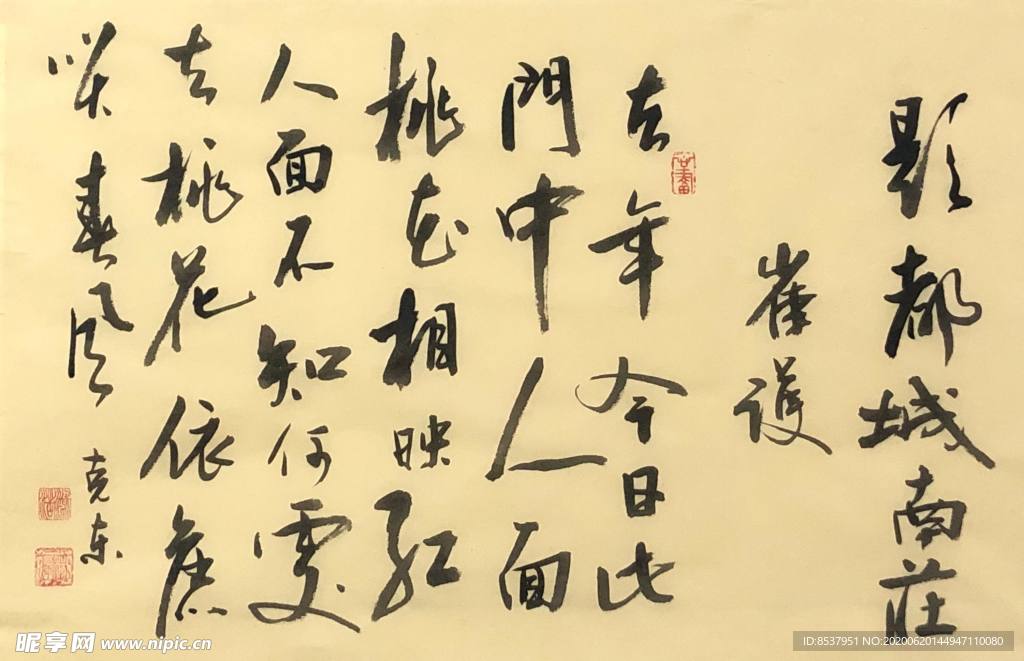 題都城南莊
崔護
去年今日此
門中人面
桃花相映紅
人面不知何處
去桃花依舊
咲春風
克東
昵享网 www.nipic.cn
ID:8537951 NO:20200620144947110080